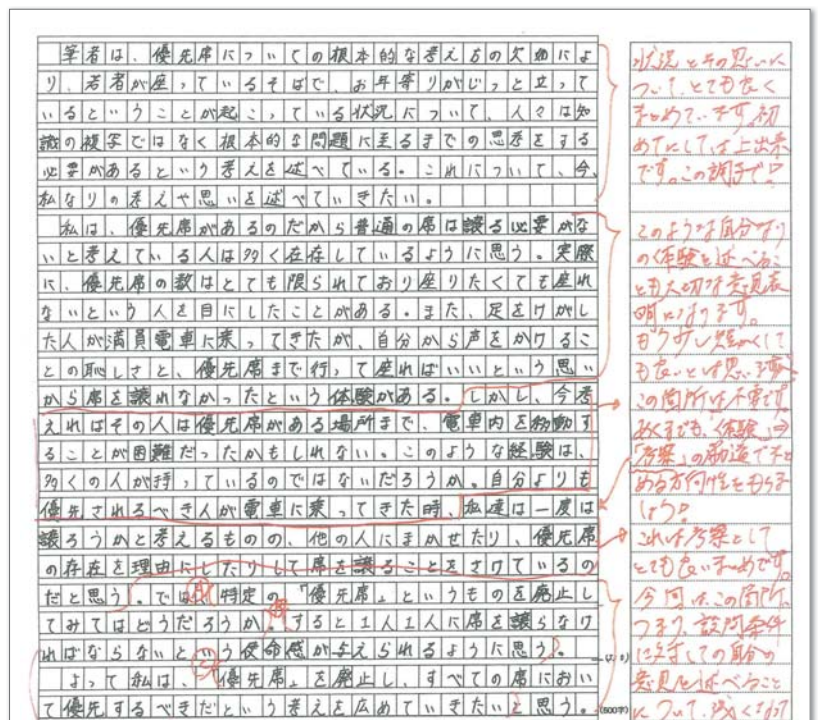 筆者は、優先席についての根本的な考え方の欠如によ
り、若者が座っているそばで、お年寄りがじっと立って
いるということが起こっている状況について、人々は知
識の複写ではなく根本的な問題に至るまでの思考をする
必要があるという考えを述べている。これについて、今、
私なりの考えや思いを述べていきたい。
私は、優先席があるのだから普通の席は譲る必要がな
いと考えている人は多く在存しているように思う。実際
に、優先席の数はとても限られており座りたくても座れ
ないという人を目にしたことがある。また、足をけがし
た人が満員電車に乗ってきたが、自分から声をかけるこ
との恥しさと、優先席まで行って座ればいいという思い
から席を譲れなかったという体験がある。しかし、今考
えればその人は優先席がある場所まで、電車内を移動す
ることが困難だったかもしれない。このような経験は、
多くの人が持っているのではないだろうか。自分よりも
優先されるべき人が電車に乗ってきた時、私達は一度は
譲ろうかと考えるものの、他の人にまかせたり、優先席
の存在を理由にしたりして席を譲ることをさけているの
だと思う。では、特定の「優先席」というものを廃止し
てみてはどうだろうか。すると1人1人に席を譲らなけ
ればならないという使命感が与えられるように思う。
よって私は、「優先席」を廃止し、すべての席におい
て優先するべきだという考えを広めていきたいと思う。
(500字)
状況とその思いに
ついて、とても良く
まとめています。初
めてにしては上出来
です。この調子で!
このような自分なり
の体験を述べるこ
とも大切な意見表
明になります。
もう少し短かくして
も良いとは思います
この箇所は不要です。
あくまでも、「体験」⇒
「考察」の構造で
める方向性をもちま
しょう。
これは考察として
とても良いまとめです。
今回は、この箇所、
つまり、設問条件
に対しての自分の
意見を述べること
について、浅くなって